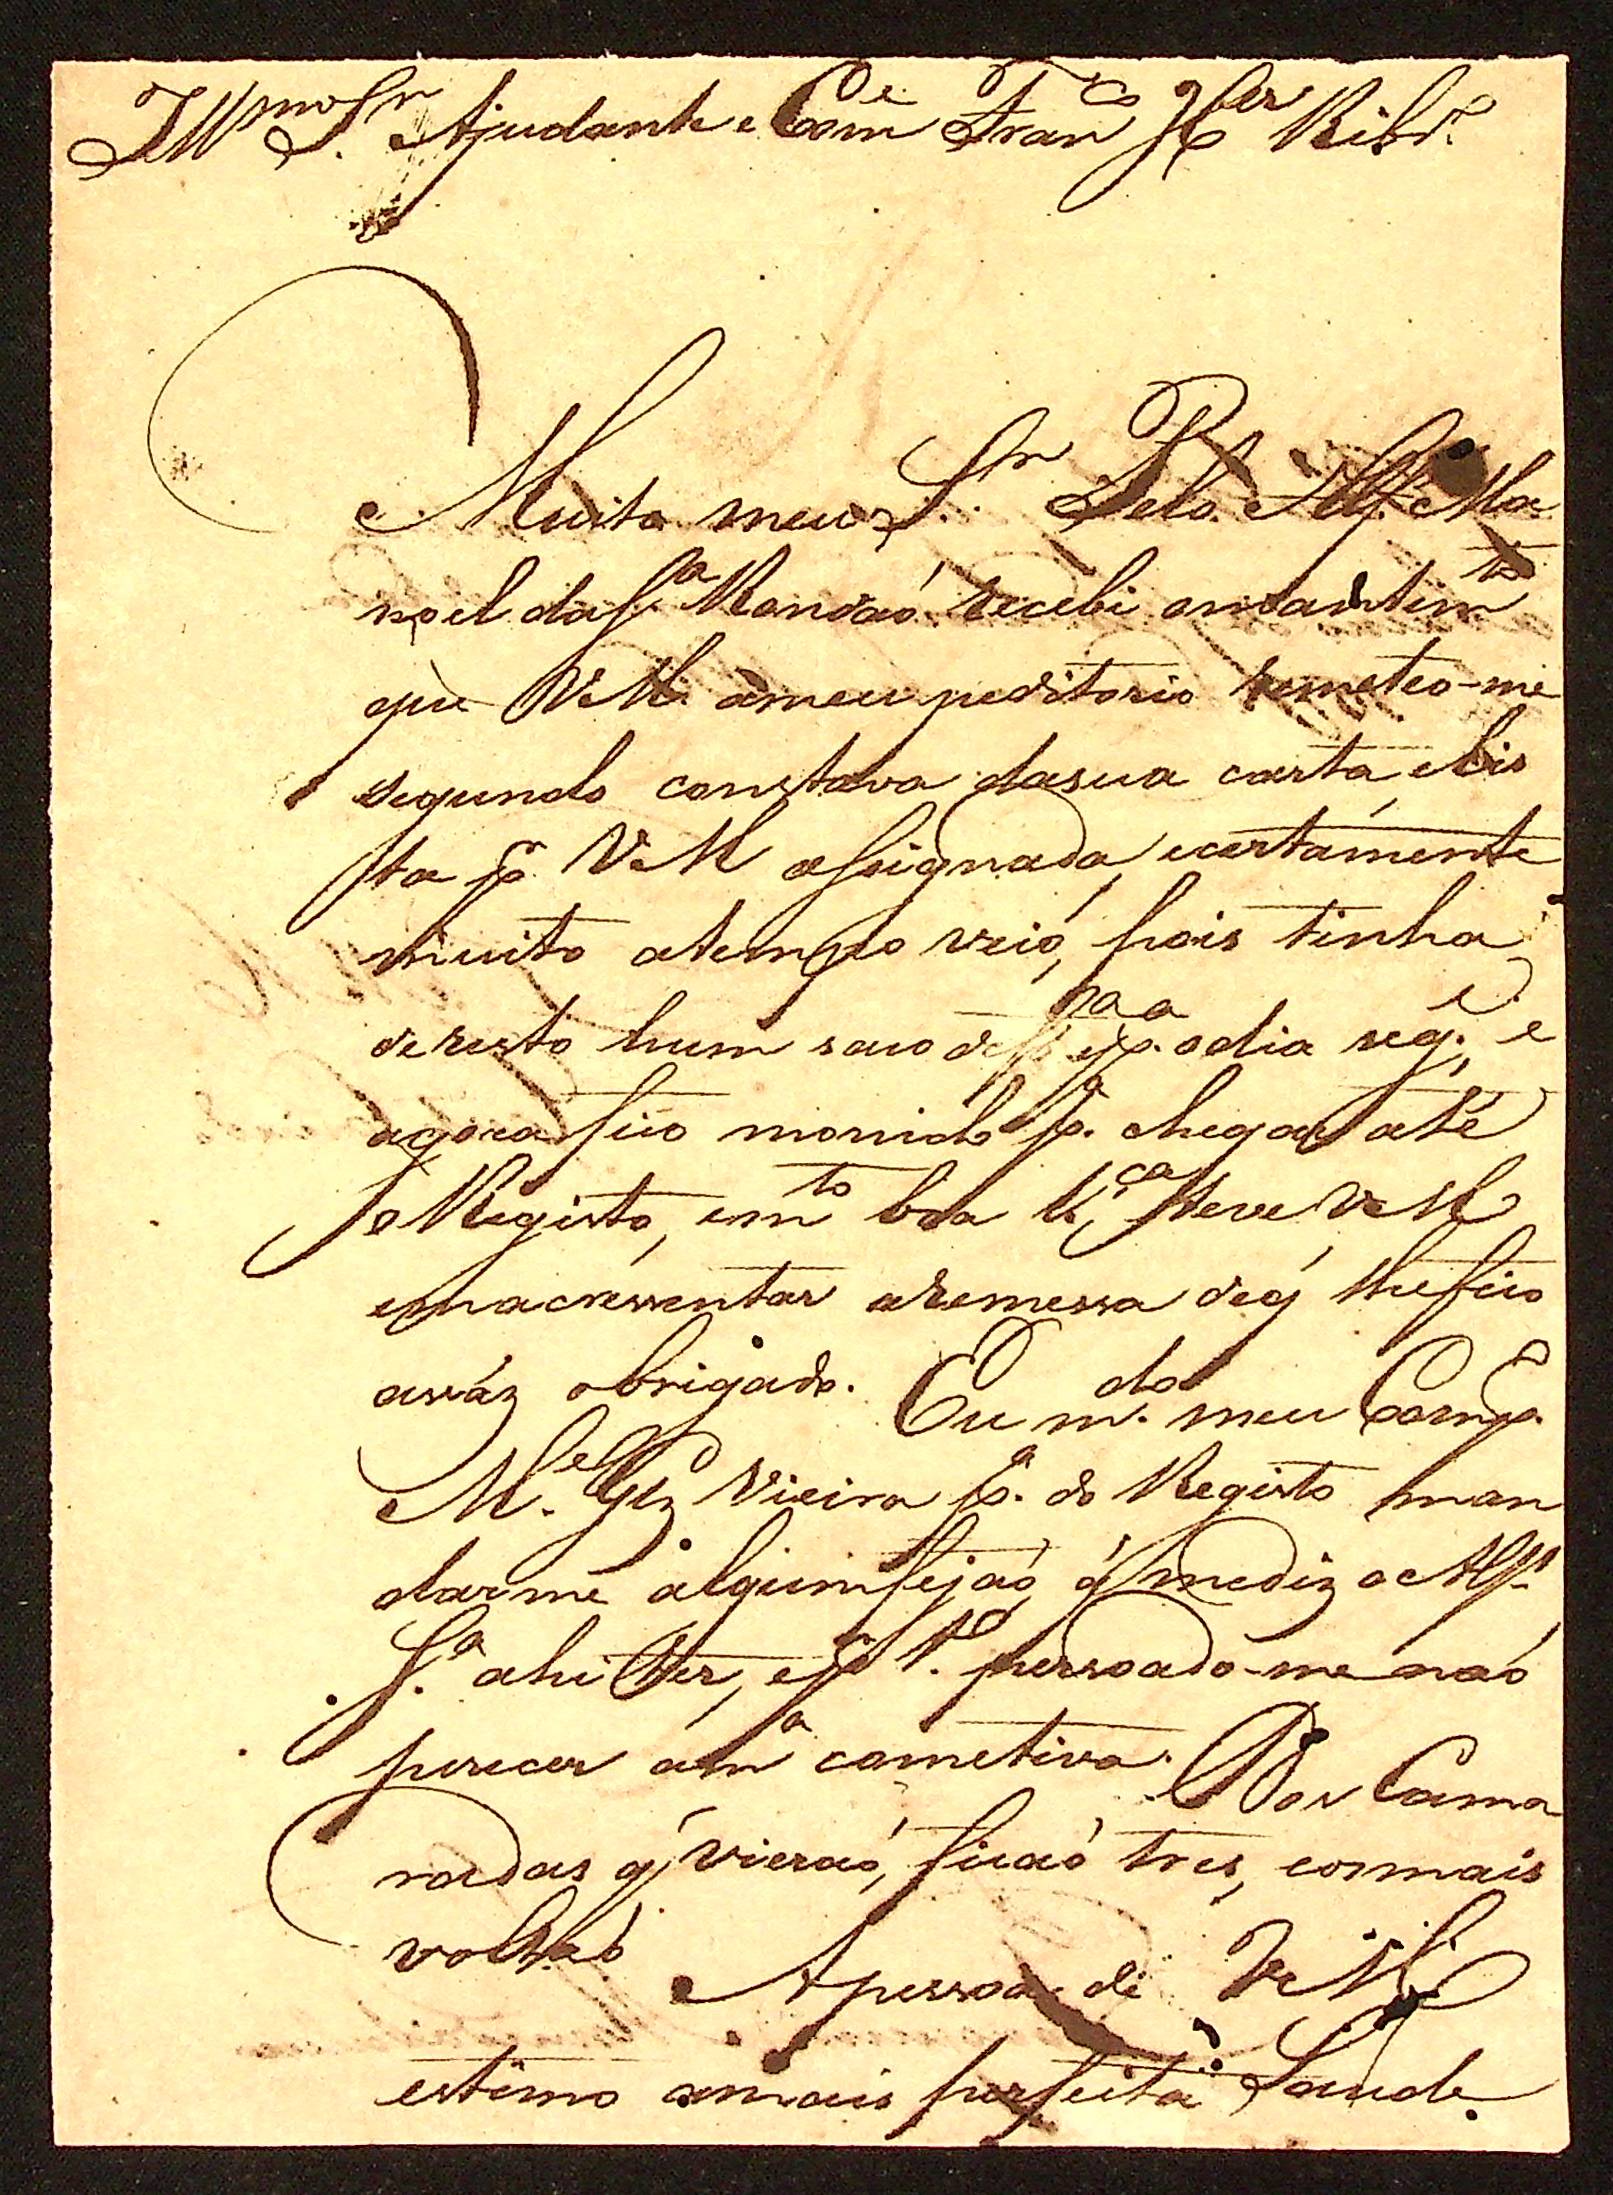 Illmo Sr. Ajudante e Come Franco Xer Ribro
Muito meu Sr. Pelo Alfs Ma
noel da Sa Rondaó recebi o mantimto
que VM. a meu peditorio remeteo-me
segundo constava da sua carta, e lis
ta por VM assignada, e certamente
muito a tempo veio, pois tinha
de resto hum saco de pa o dia seg.e, e
agora fico monido pa chegar até
o Registo, e mto boa lca teve VM
em acressentar a remessa de q' lhe fico
assáz obrigado. Eu m.do meu Compe
Mel Glz Vieira pa do Registo man
darme algum feijaó q' me diz o Alfs
Sa ahi ter, e por persoado-me naó
perecer a ma cometiva. Dos Cama
radas q' vieraó, ficaó tres, e os mais
voltaó
A pessoa de VM
estimo a mais perfeita Saude.